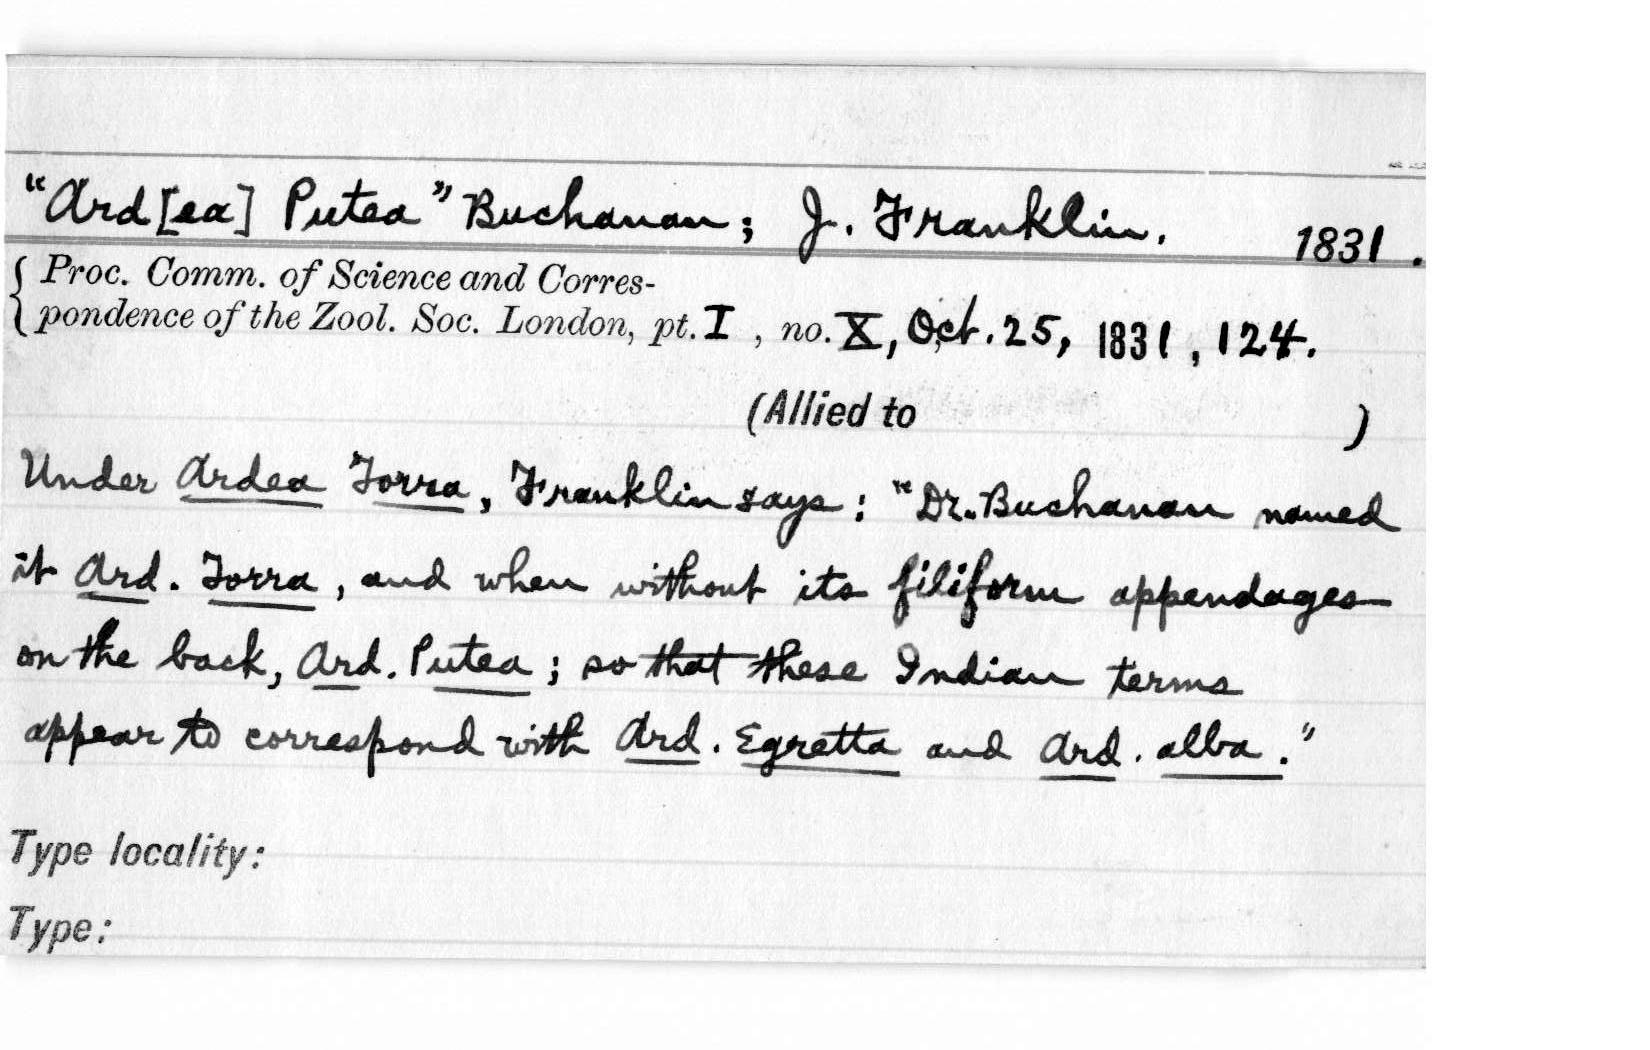 "Ard[ea] Putea" Buchanan; J. Franklin. 1831.
Proc. Comm. of Science and Corres-
pondence of the Zool. Soc. London, pt. I, no. X, Oct. 25, 1831, 124.
(Allied to )
Under Ardea Torra, Franklin says: "Dr. Buchanan named
it Ard. Torra, and when without its filiform appendages
on the back, Ard. Putea; so that these Indian terms
appear to correspond with Ard. Egretta and Ard. alba."
Type locality:
Type: